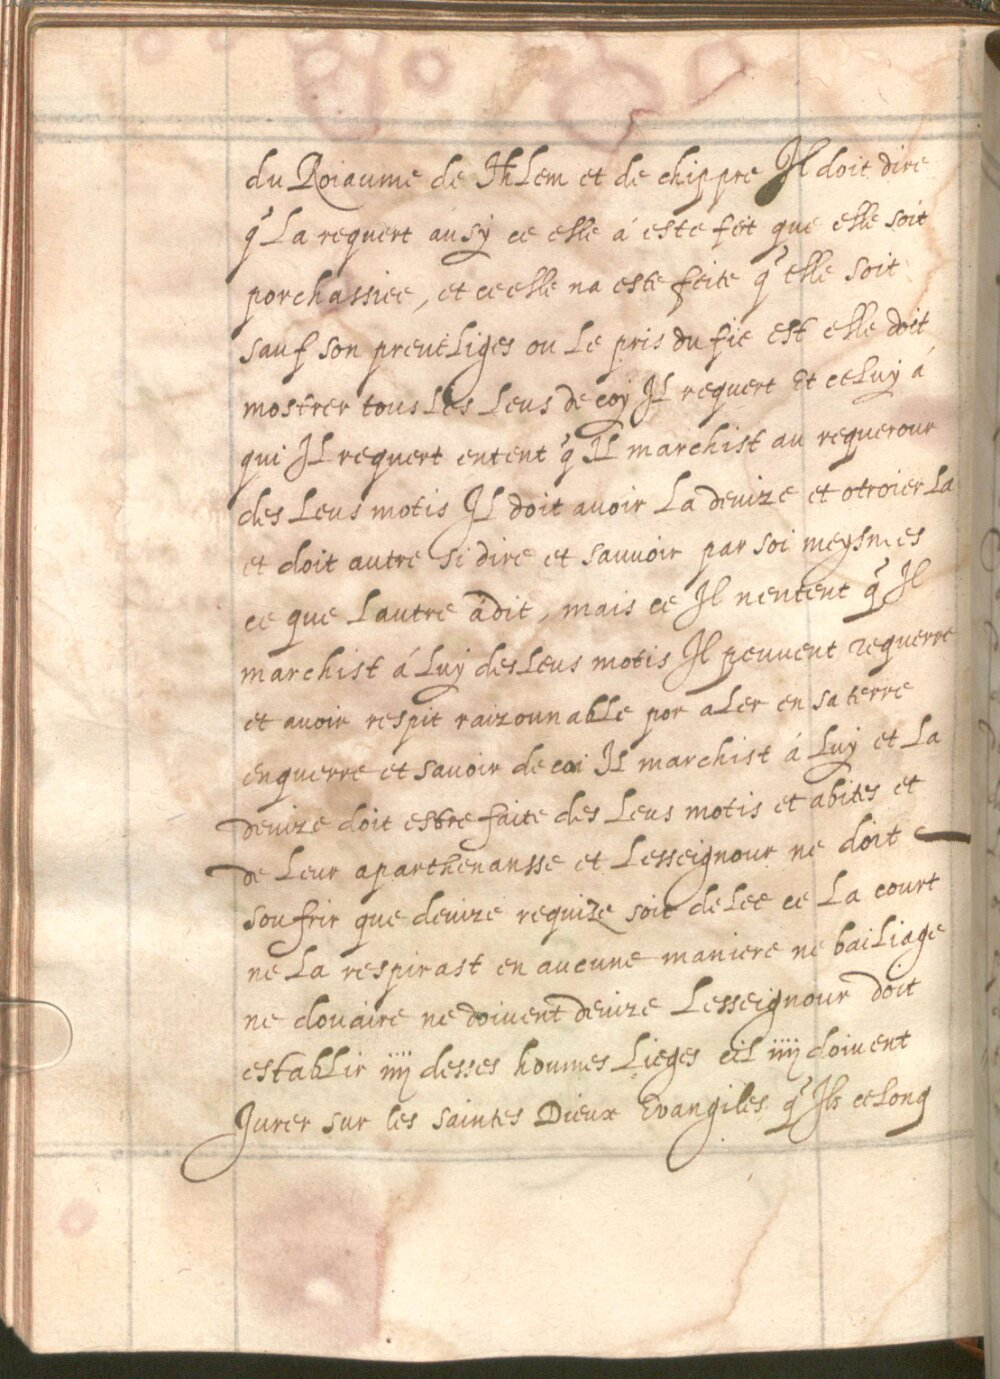 du Roiaume de Jhlem et de chippre Il doit dire
q̃ La requert ausy ce elle á este fét que elle soit
porchassiee, et ce elle na este feite q̃ elle soit
sauf son preuiliges ou le pris du fié est elle doit
mostrer tous les Leus de coy Il requert Et celuy á
qui Il requert entent q̃ Il marchist au requerour
des Leus motis Il doit auoir La deuize et otroier La
et doit autre si dire et sauuoir par soi meysmes
ce que Lautre a dit, mais ce Il nentent q̃ Il
marchist á Luy des Leus motis Il peuuent requerre
et auoir respit raizounable por aler en sa terre
enquerre et sauoir de coi Il marchist á Luy et La
deuize doit estre faite des Leus motis et abites et
de Leur aparthenansse et Lesseignour ne doit
soufrir que deuize requize soit delee ce La court
ne La respirast en aucune maniere ne bailiage
ne douaire ne doiuent deuize Lesseignour doit
establir iiij desses houmes Lieges cil iiij doiuent
Jurer sur les saintes Dieux Evangiles q̃ Ils celong